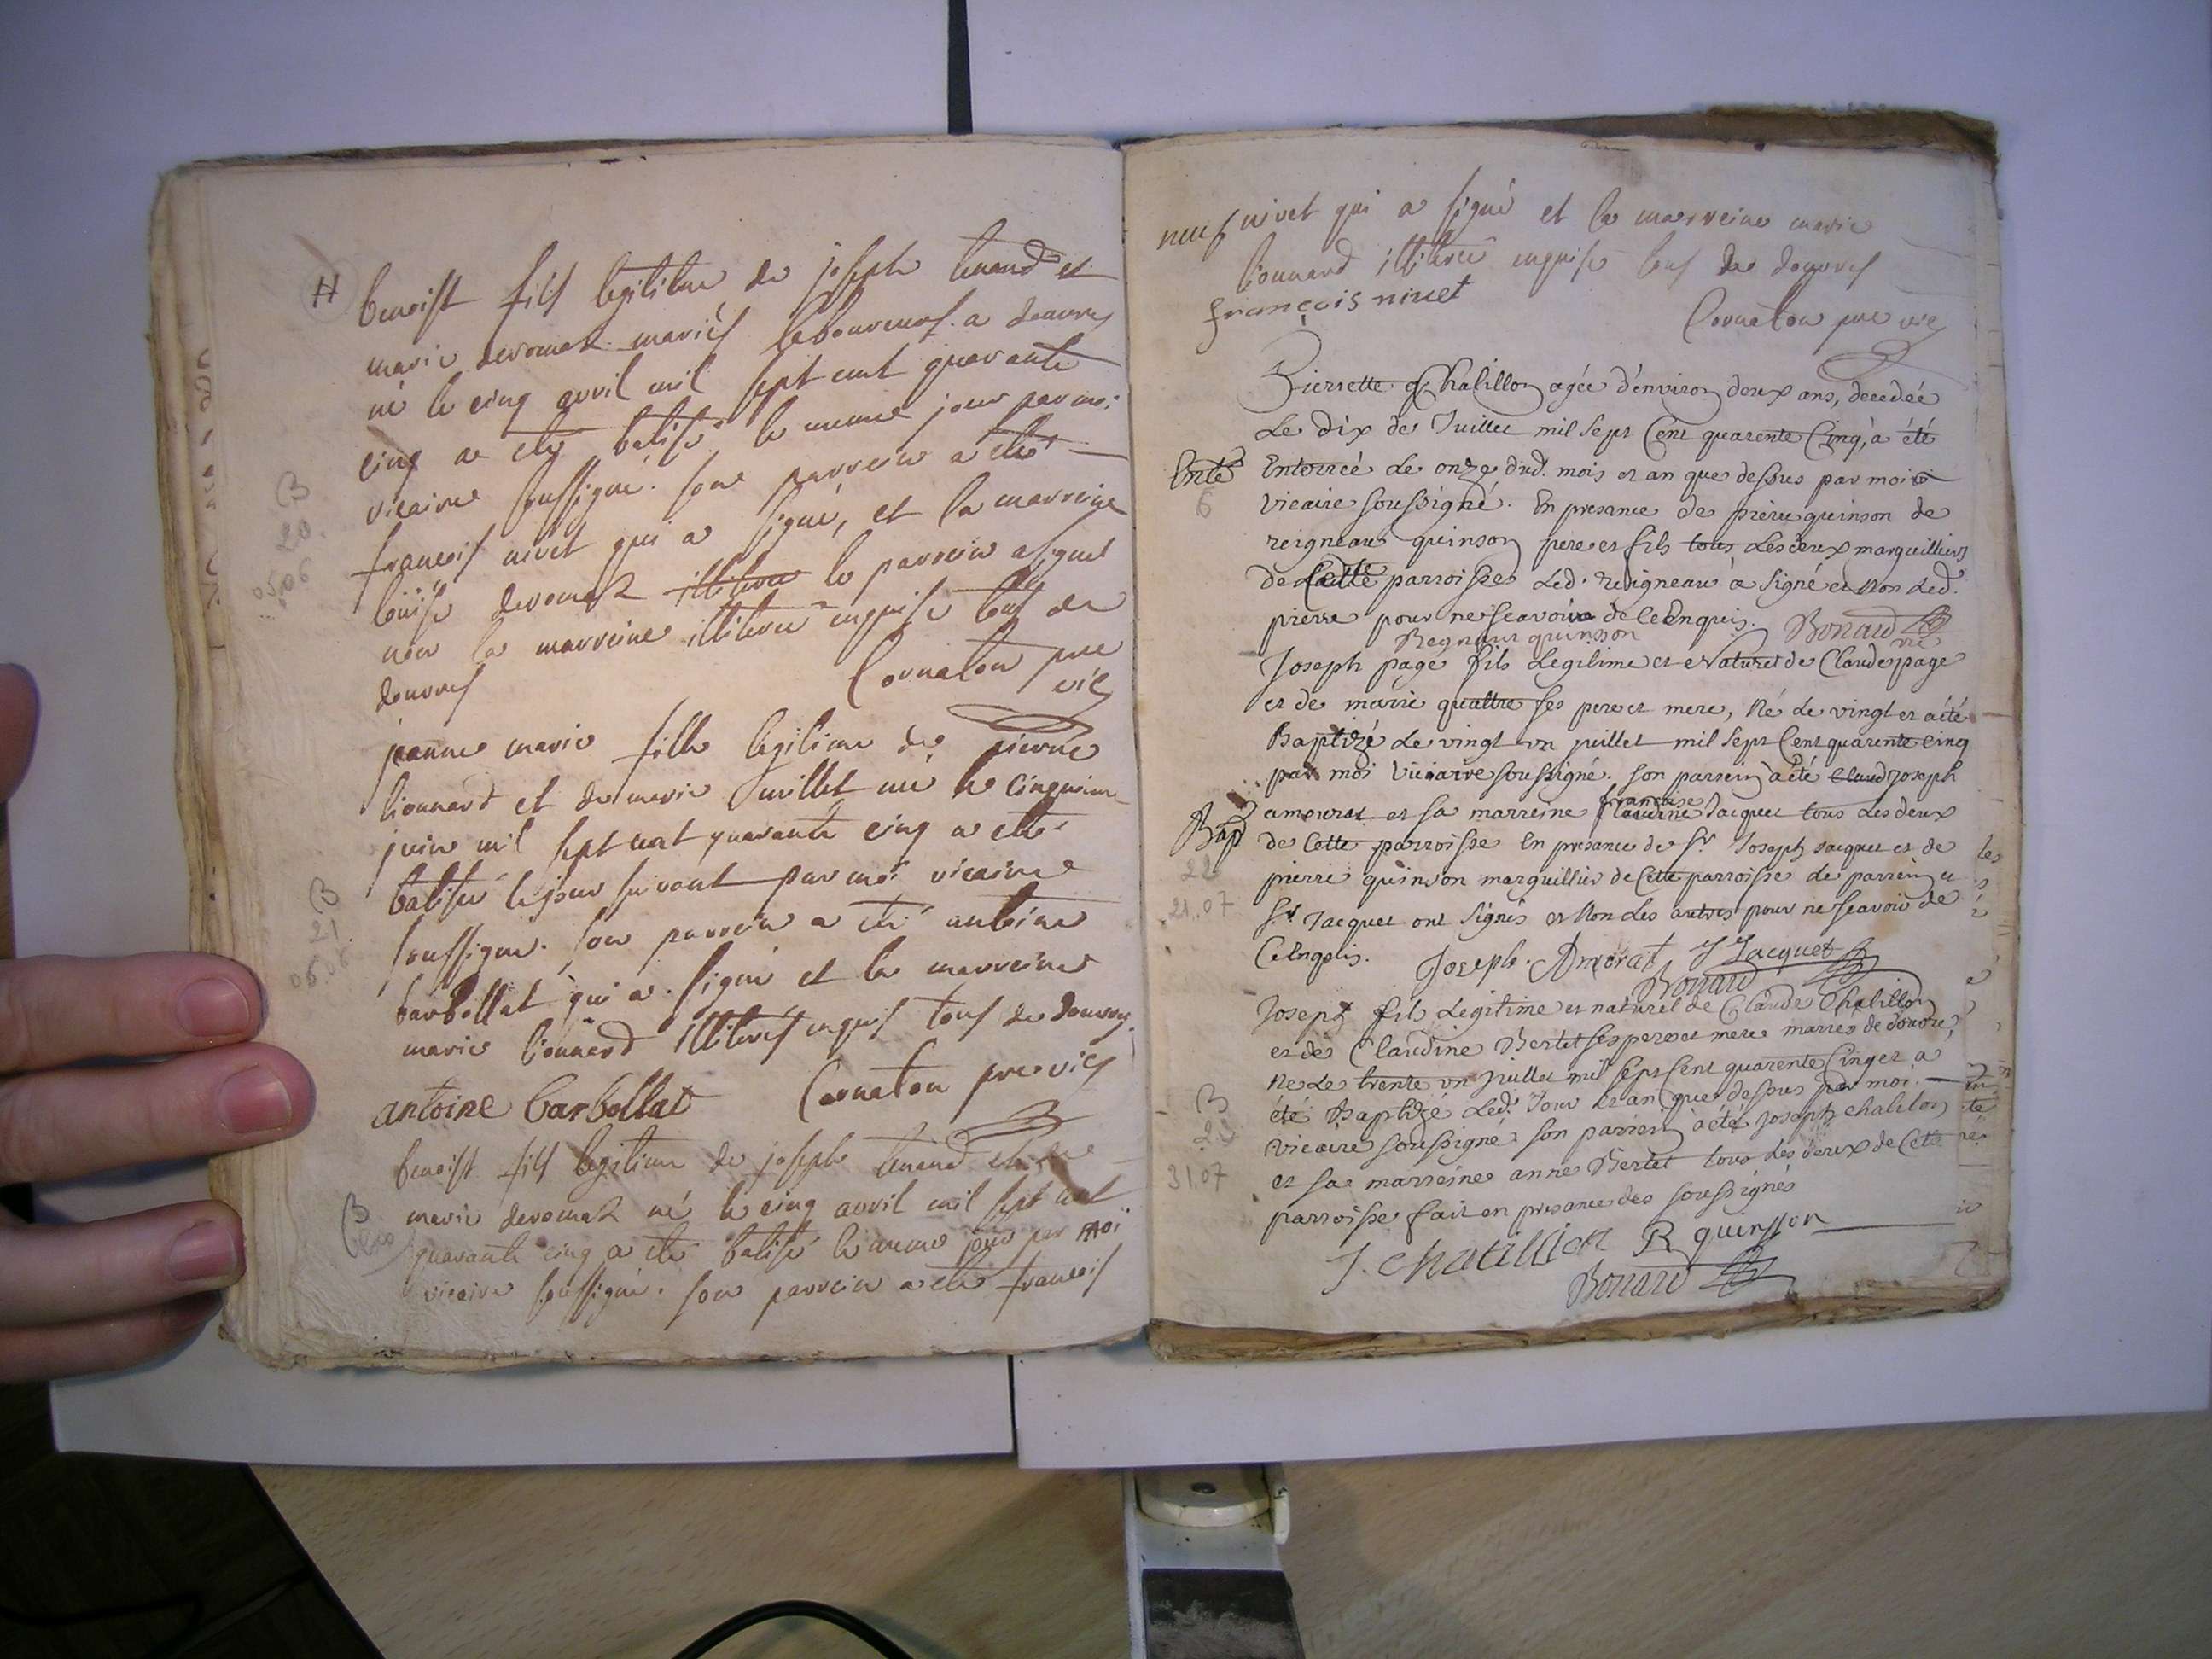 H
benoist fils legitime de joseph tenand et
marie devomat mariés laboureurs a douvres
né le cinq avril mil sept cent quarante
cinq a eté batisé le meme jour par moi
vicaire soussigné. son parrein a eté
francois nivet qui a signé, et la marreine
loüise devomat illiteree le parrein a signé
non la marreine illiteree enquise tous de
douvres
Cornaton pre
vic
B
20.
05.06
jeanne marie fille legitime de pierre
lionnard et de marie
né le cinquieme
juin mil sept cent quarante cinq a eté
batisé le jour suivant par moi vicaire
soussigné. son parrein a eté antoine
barbollat qui a signé et la marreine
marie lionnard illiteres enquis tous de douvres.
B
21.
06.06
antoine barbollat
Cornaton pre vic
benoist fils legitime de joseph tenand et de
marie devomat né le cinq avril mil sept cent
quarante cinq a eté batisé le meme jour par moi
vicaire soussigné. son parrein a eté francois
B
neuf
nivet qui a signé et la marreine marie
lionnard illiteree enquise tous de douvres
françois nivet
Cornaton pre vic
Pierrette Chalillon agée d'environ deux ans, decedée
Le dix de Juillet mil sept Cent quarente Cinq, a été
Ente
6
Enterrée Le onze dud. mois et an que dessus par moi
vicaire soussigné. En presance de pierre quinson de
reigneau quinson pere et fils tous Les deux marguilliers
de Cette parroisse Led. reigneau a signé et Non Led.
pierre pour ne scavoir de ce Enquis.
Regnaur quinson
Bonard
vic
Joseph page fils Legitime et Naturel de Claude page
et de marie quattre ses pere et mere, Né Le vingt et a été
Baptizé Le vingt un juillet mil Sept Cent quarente cinq
par moi Vicaire soussigné. son parrein a été Claud joseph
amourat et sa marreine francoise Claudine Jacquet tous Les deux
Bap
22
21.07
de Cette parroisse En presance de Sr. Joseph Jacquet et de
pierre quinson marguillier de Cette parroisse Le parrein et
Sr. Jacquet ont signés et Non Les autres pour ne scavoir de
Ce Enquis.
Joseph. Amorat
J Jacquet
Bonard
Joseph fils Legitime et naturel de Claude Chalillon
et de Claudine Bertet ses pere et mere mariés de douvre,
Ne Le trente un juillet mil sept Cent quarente Cinq et a
été Baptizé Led. Jour et an que dessus par moi.
vicaire soussigné son parrein a été Joseph chalillon
et sa marreine anne Bertet tous Les deux de Cette
parroisse fait en presance des soussignés
B
23
31.07
J. chatillion
R quinsson
Bonard